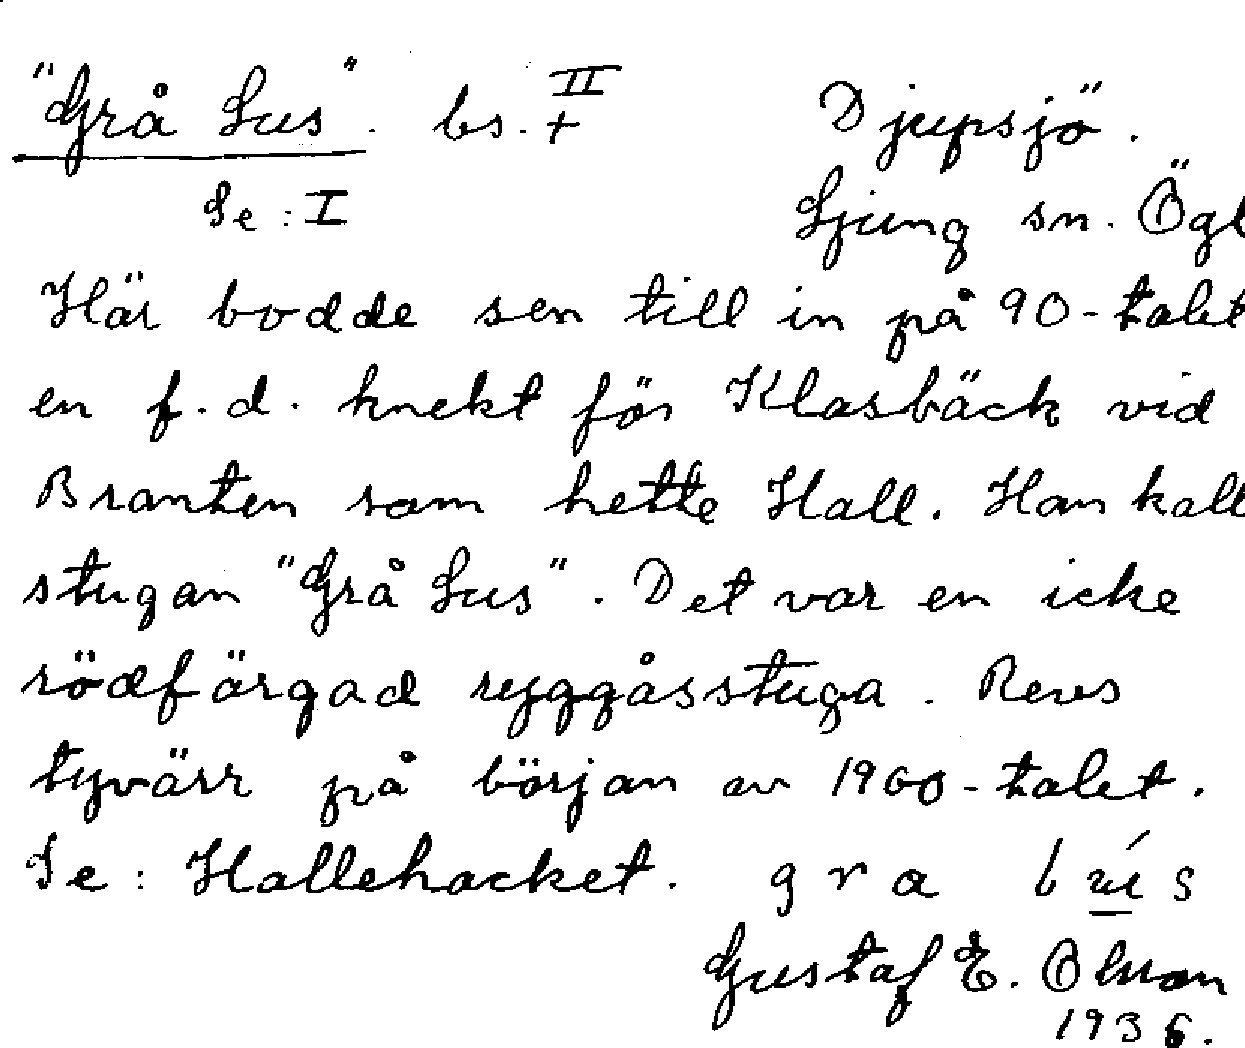 "Grå Lus". bs. + II Djupsjö.
Se: I Ljung sn. Ögl
Här bodde sen till in på 90-talet
en f.d. knekt för Klasbäck vid
Branten som hette Hall. Han kall
stugan "Grå Lus". Det var en icke
rödfärgad ryggåsstuga. Revs
tyvärr på början av 1900-talet.
Se: Hallehacket. gra lús
Gustaf E. Olsson
1936.